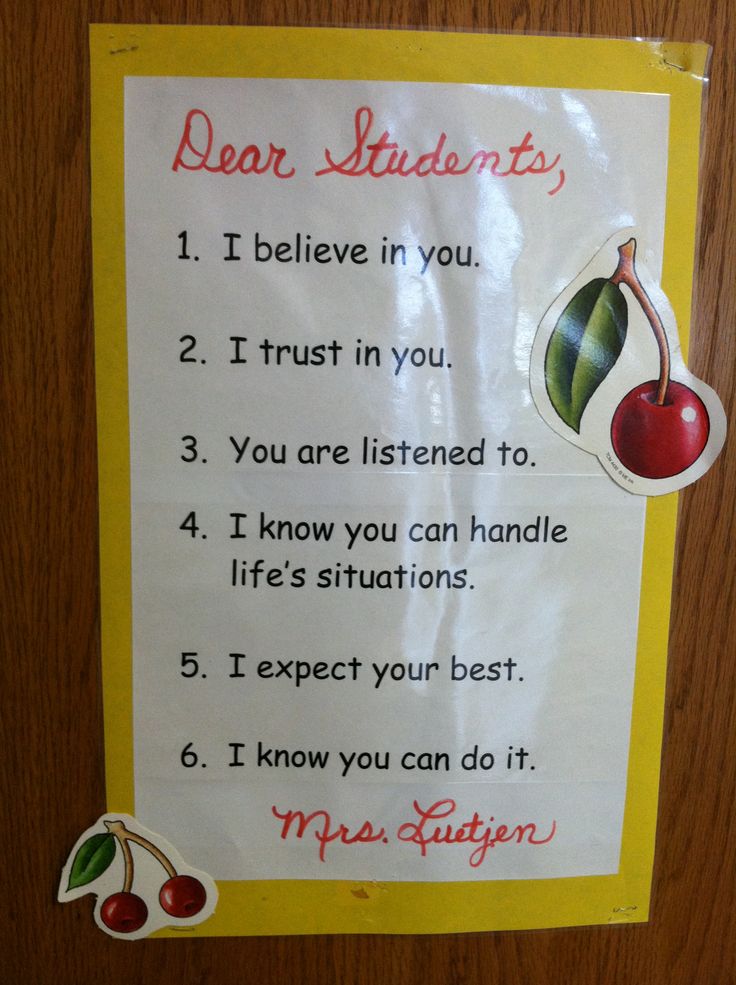 Dear Students,
1. I believe in you.
2. I trust in you.
3. You are listened to.
4. I know you can handle
life's situations.
5. I expect your best.
6. I know you can do it.
Mrs. Luetjen